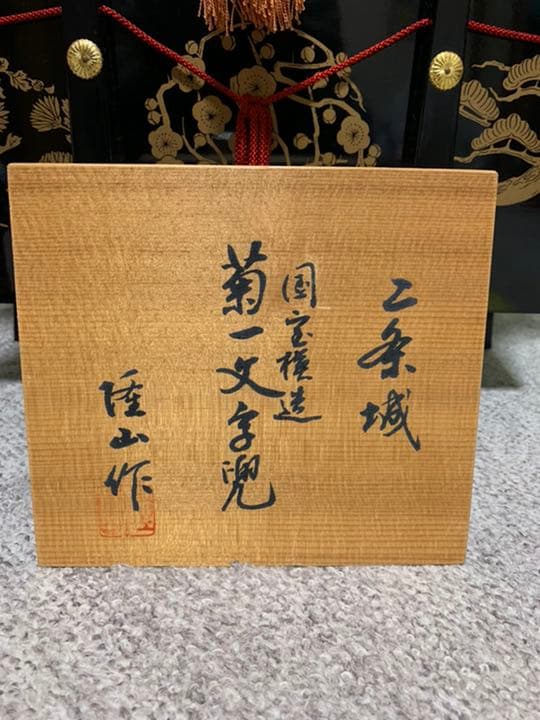 二条城
国宝模造
菊一文字兜
陸山作